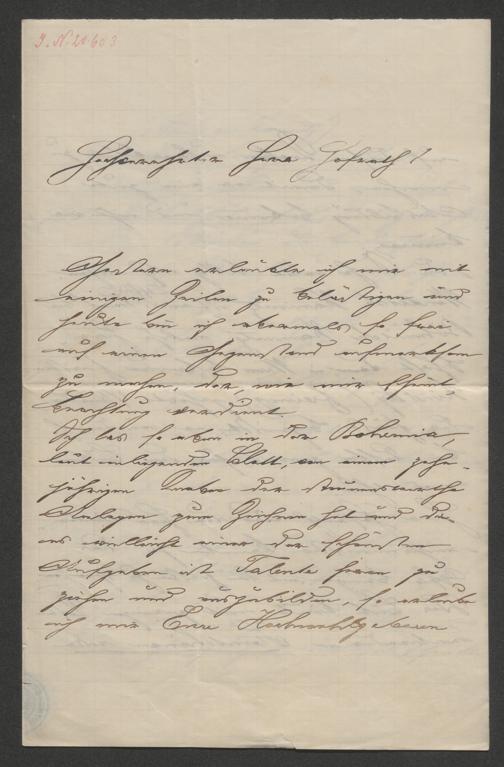 J. N. 21.603
Hochverehrter Herr Hofrath!
Gestern erlaubte ich mir mit
einigen Zeilen zu belästigen und
heute bin ich abermals so frei
auf einen Gegenstand aufmerksam
zu machen, der, wie mir scheint,
Beachtung verdient.
Ich las so eben in der Bohemia,
laut inliegenden Blatt, von einem zehn-
jährigen Knaben der staunenswerthe
Anlagen zum Zeichnen hat und da
es vielleicht einer der schönsten
Aufgaben ist Talente heran zu
ziehen und auszubilden, so erlaube
ich mir Euer Hochwohlgeboren